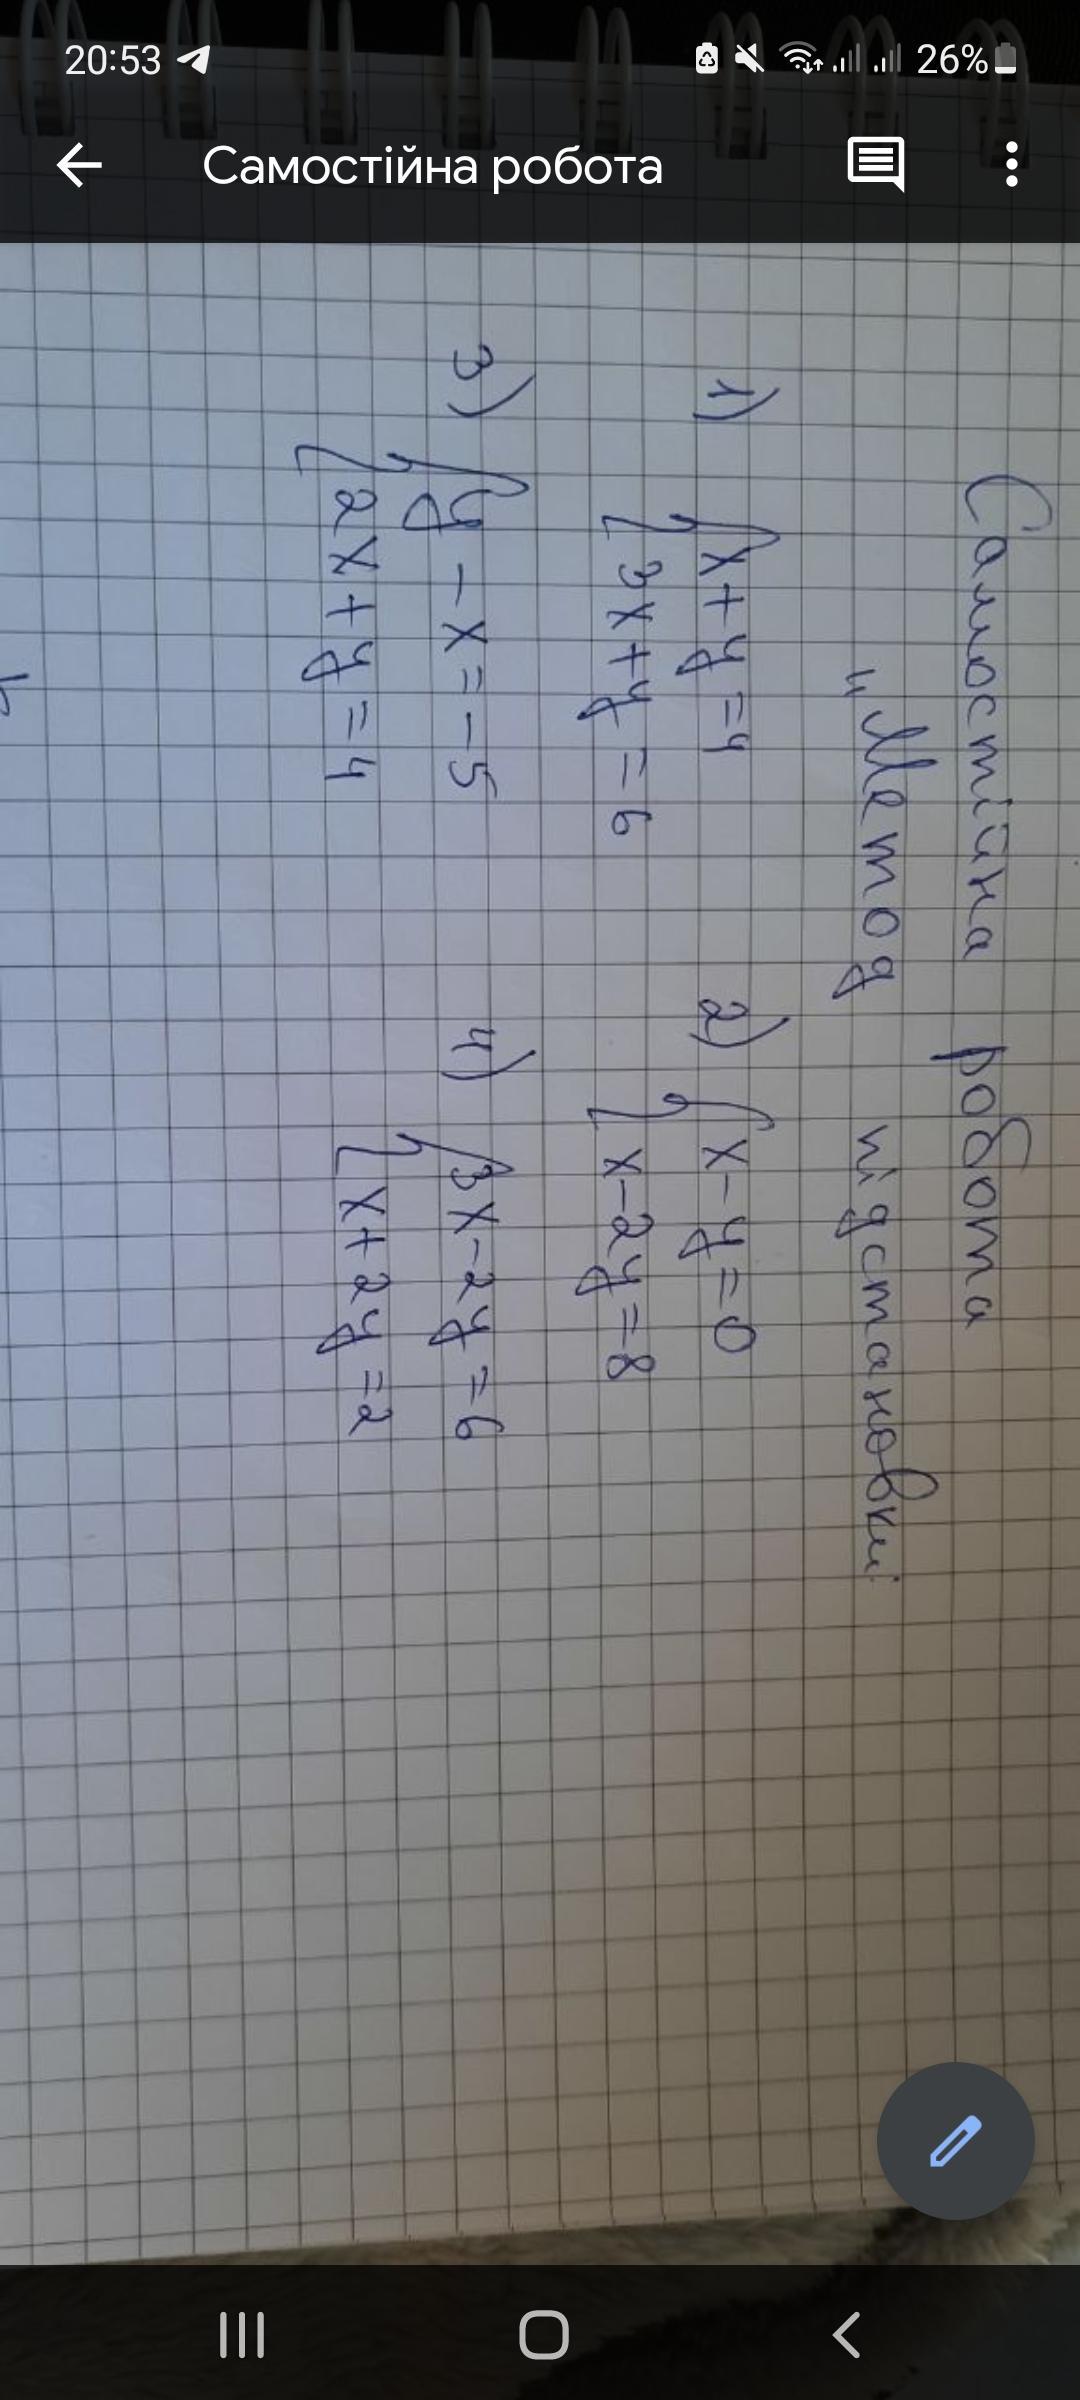 20:53 26%
Самостійна робота
Самостійна робота
"Метод підстановки
1) x+y=4
3x+y=6
2) x-y=0
x-2y=8
3) y-x=-5
2x+y=4
4) 3x-2y=6
x+2y=2